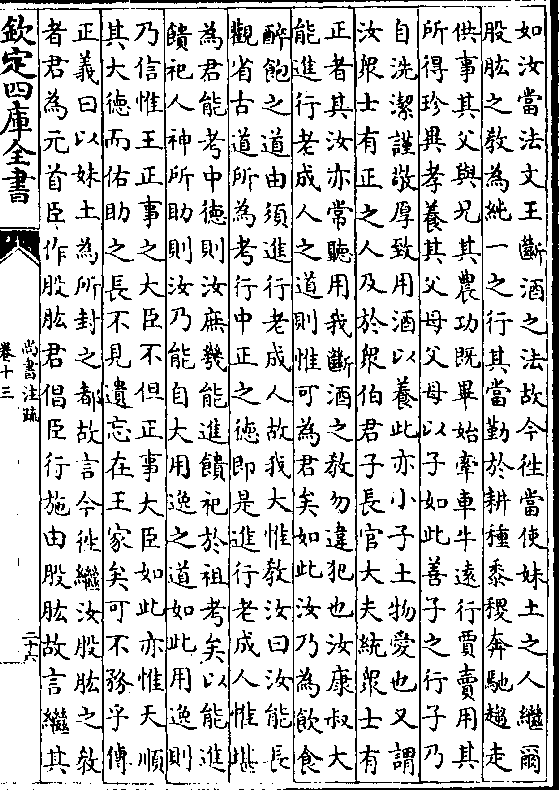 如汝當法文王斷酒之法故今徃當使妹土之人繼爾
股肱之教為純一之行其當勤於耕種黍稷奔馳趨走
供事其父與兄其農功既畢始牽車牛遠行賈賣用其
所得珍異孝養其父母父母以子如此善子之行子乃
自洗潔謹敬厚致用酒以養此亦小子土物愛也又謂
汝衆士有正之人及於衆伯君子長官大夫統衆士有
正者其汝亦常聽用我斷酒之教勿違犯也汝康叔大
能進行老成人之道則惟可為君矣如此汝乃為飲食
醉飽之道由須進行老成人故我大惟教汝曰汝能長
觀省古道所為考行中正之德即是進行老成人惟堪
為君能考中德則汝庶幾能進饋祀於祖考矣以能進
饋祀人神所助則汝乃能自大用逸之道如此用逸則
乃信惟王正事之大臣不但正事大臣如此亦惟天順
其大德而佑助之長不見遺忘在王家矣可不務乎傳
正義曰以妹土為所封之都故言今徃繼汝股肱之教
者君為元首臣作股肱君倡臣行施由股肱故言繼其
欽定四庫全書
尚書注疏
卷十三
二十六